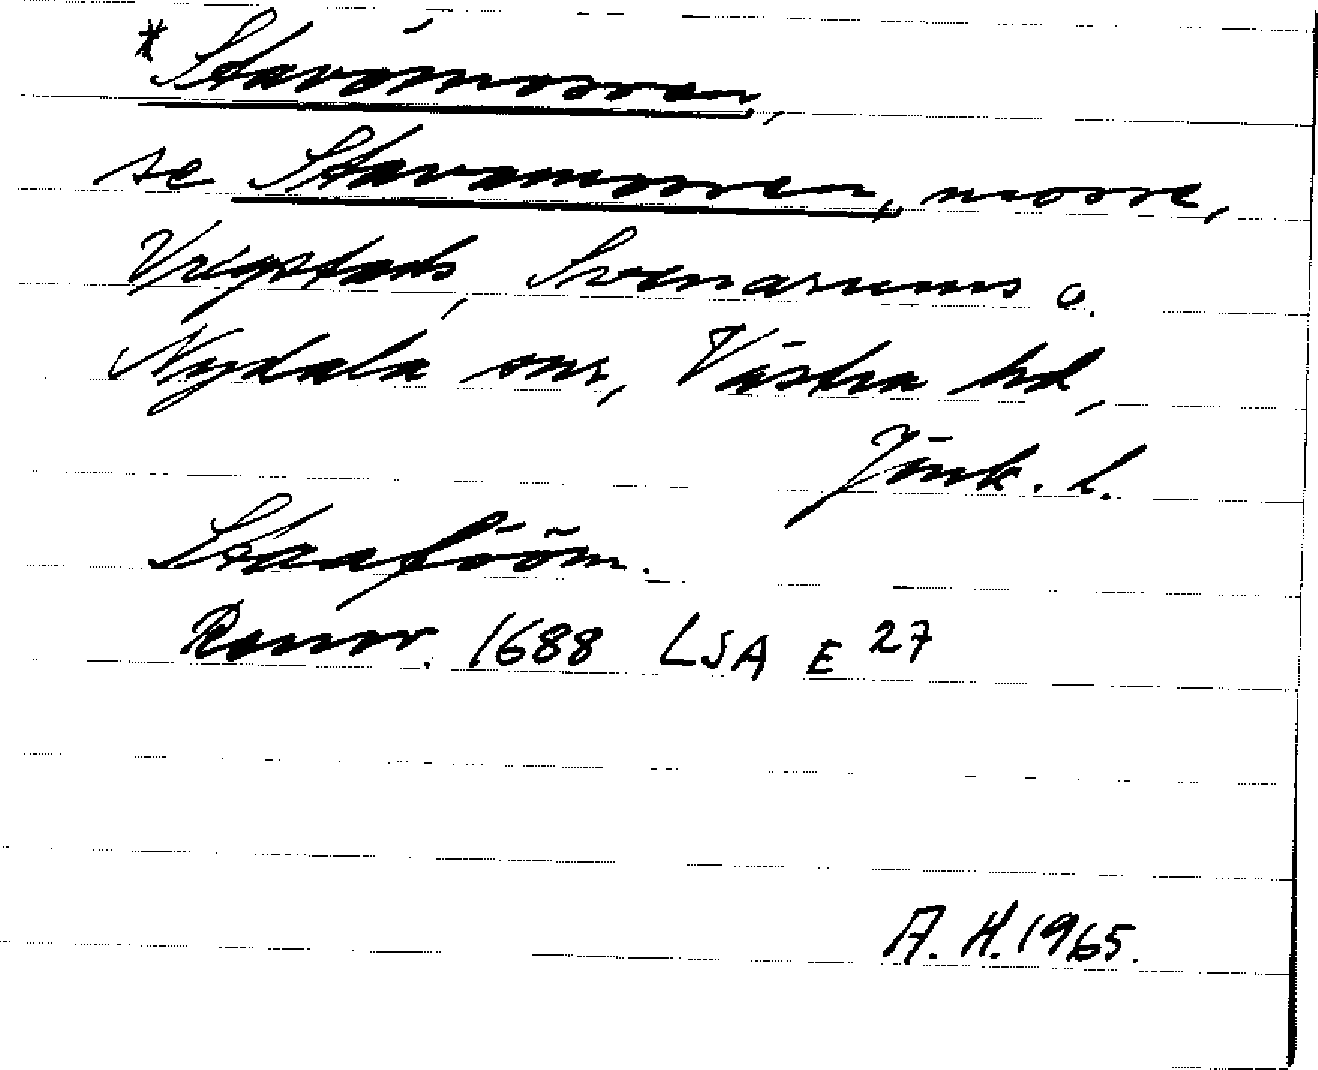 *Stavömossen,
se Stavamossen, mosse,
Vrigstads, Svenarums o.
Nydala snr, Västra hd,
Jönk. l.
Rannr. 1688 LSA E 27
A. H. 1965.